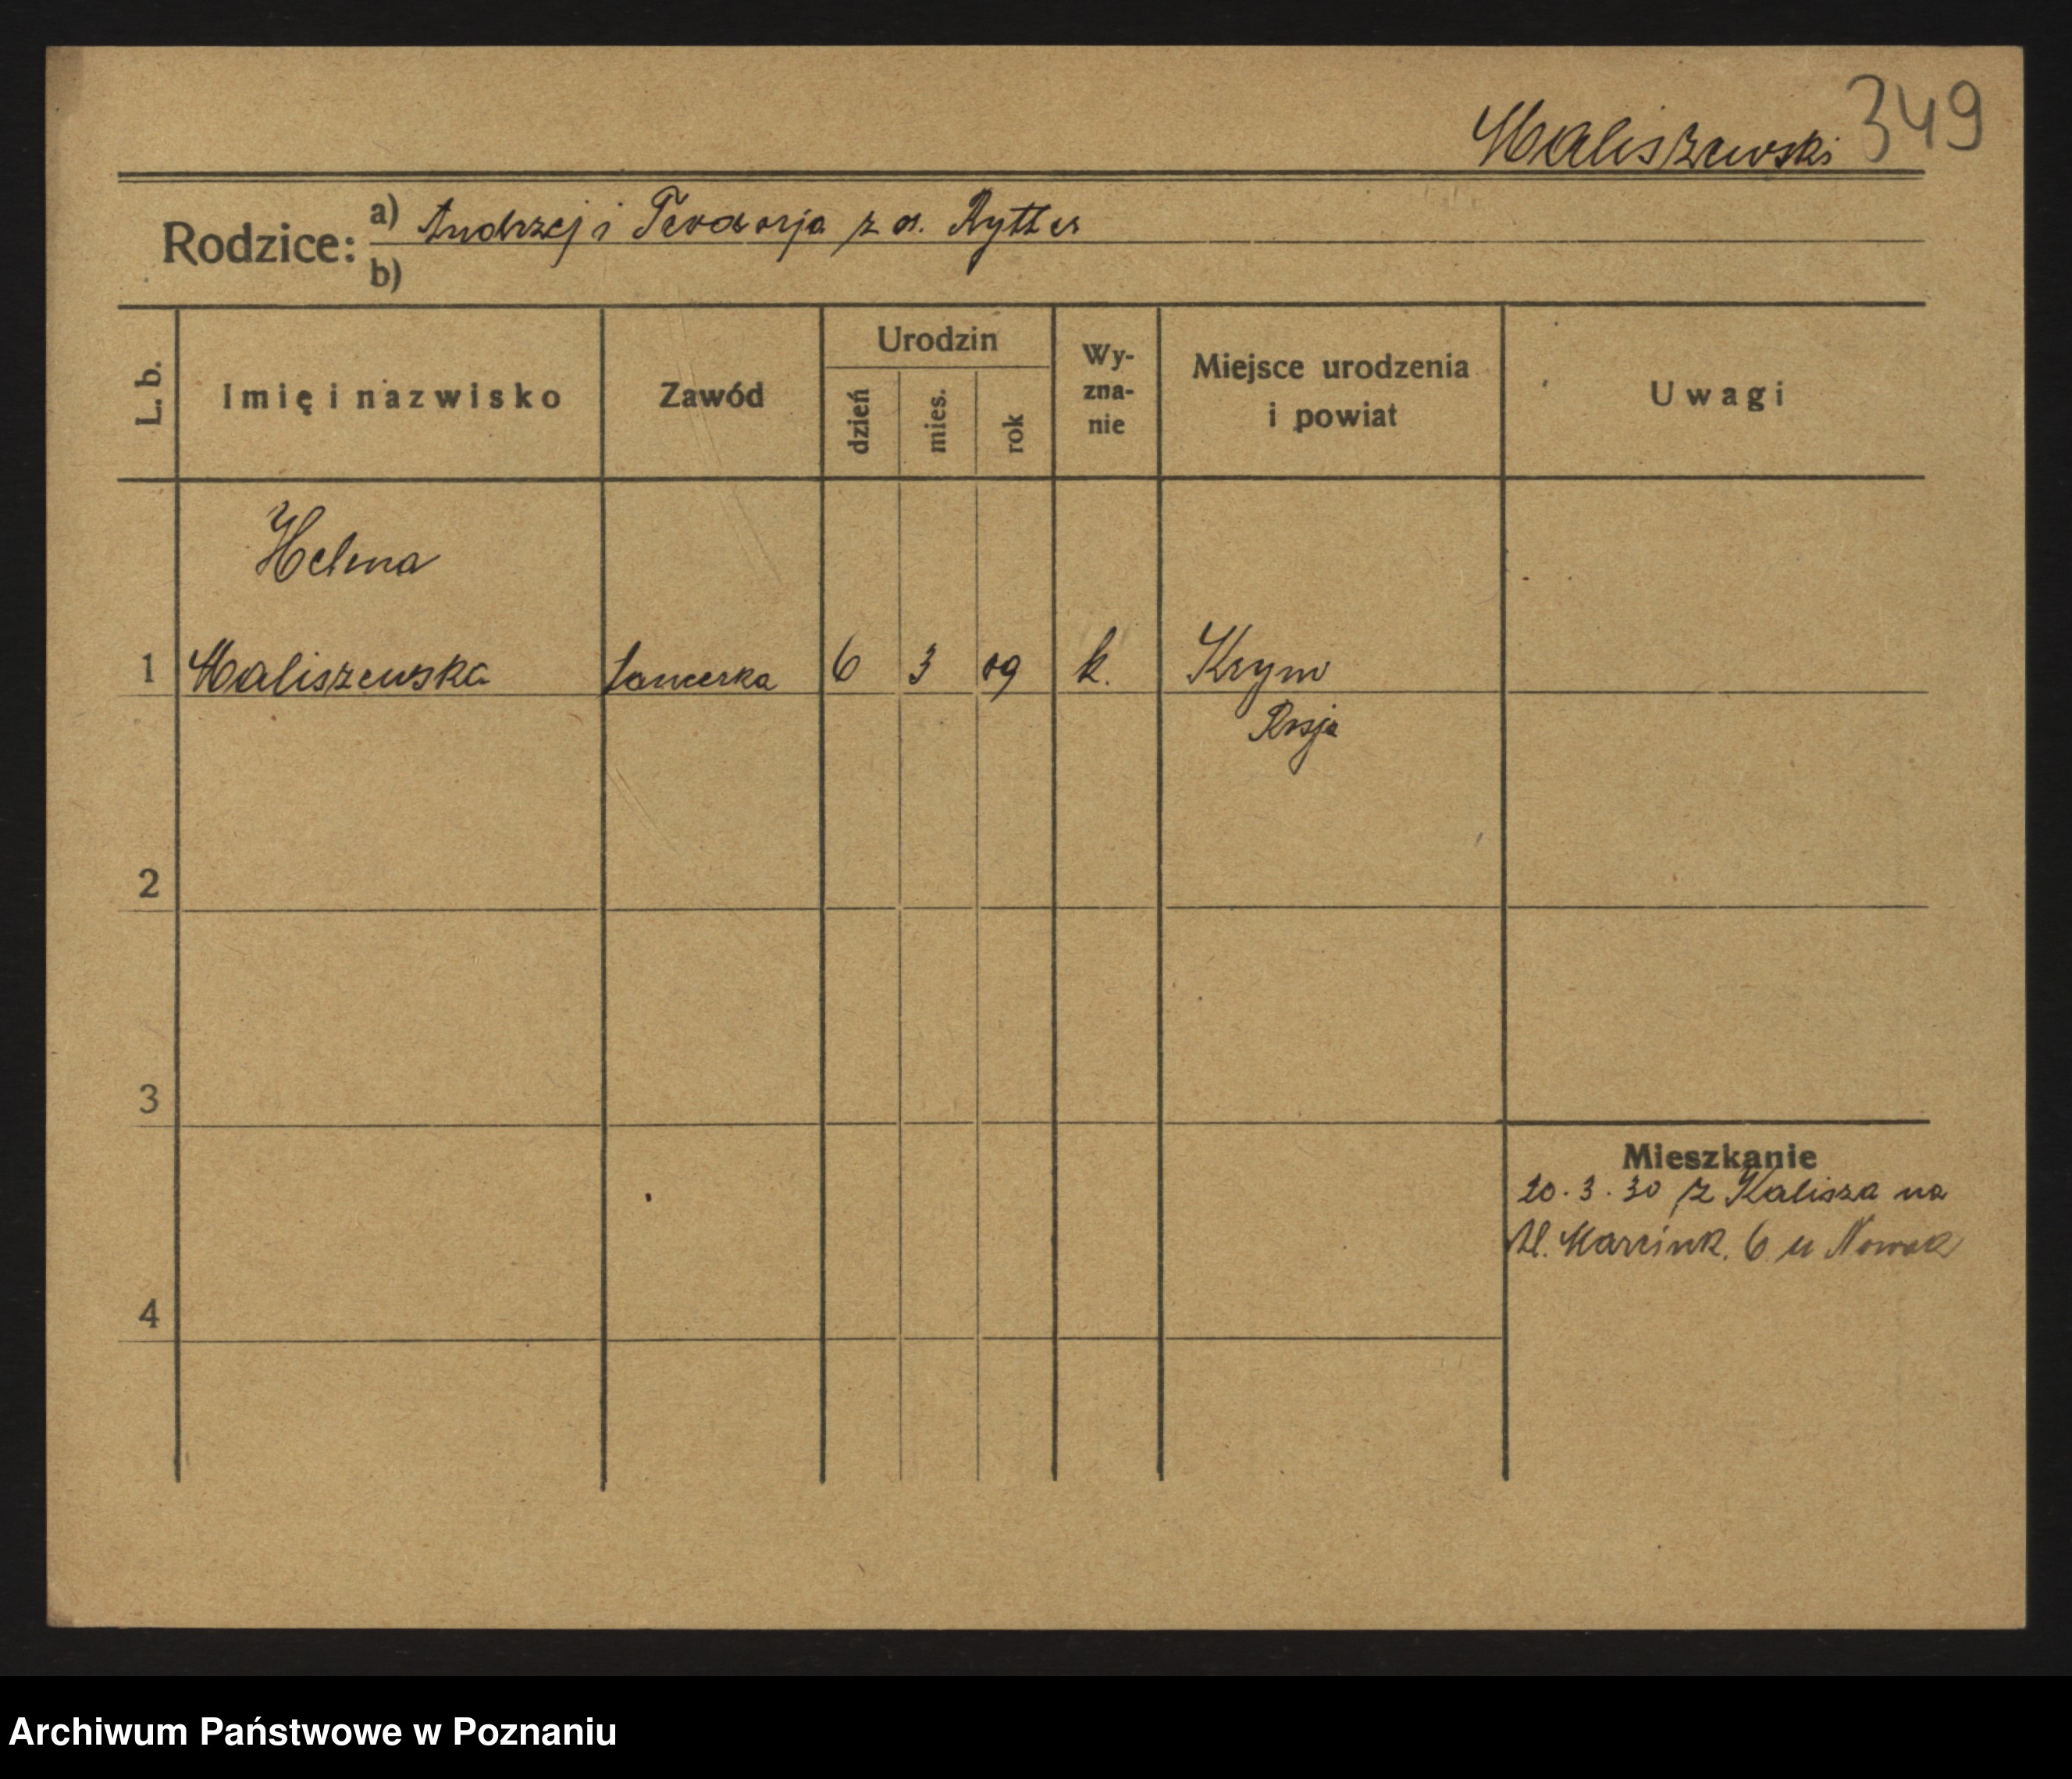 349
Maliszewski
Rodzice: a) Andrzej i Teodozja z d. Rytter
b)
L. b. Imię i nazwisko Zawód Urodzin dzień mies. rok Wy-zna-nie Miejsce urodzenia i powiat Uwagi
Helena
1 Maliszewska tancerka 6 3 09 k. Krym
Rosja
2
3
Mieszkanie
20.3.30 z Kalisza na
Al. Marcink. 6 u Nowak
4
Archiwum Państwowe w Poznaniu